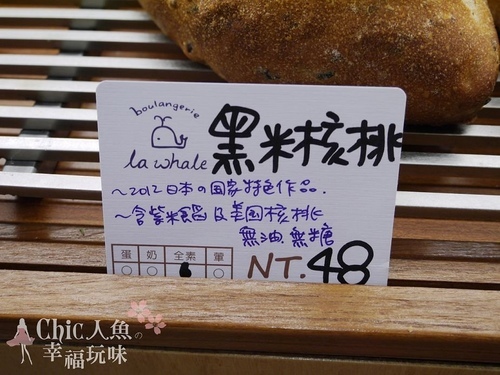 boulangerie
la whale
黑米核桃
~2012日本の国家特色作品.
~含紫米餡及美国核桃
無油.無糖
蛋 奶 全素 葷
NT.48
Chic.人魚の
幸福玩味